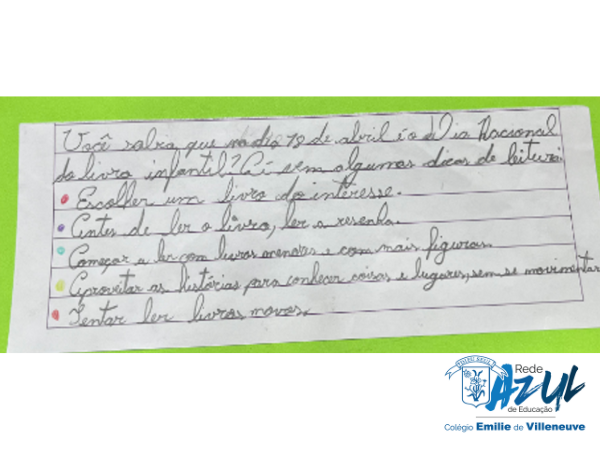 Você sabia, que no dia 18 de abril é o Dia Nacional
do livro infantil? Aí vem algumas dicas de leitura:
• Escolher um livro do interesse.
• Antes de ler o livro, ler a resenha.
• Começar a ler com livros menores e com mais figuras.
• Aproveitar as histórias para conhecer coisas e lugares, sem se movimentar
• Tentar ler livros novos.
Rede
AZUL
de Educação
Colégio Emilie de Villeneuve